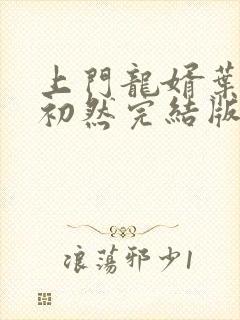 上門龍婿葉
初然完結版
浪蕩邪少1